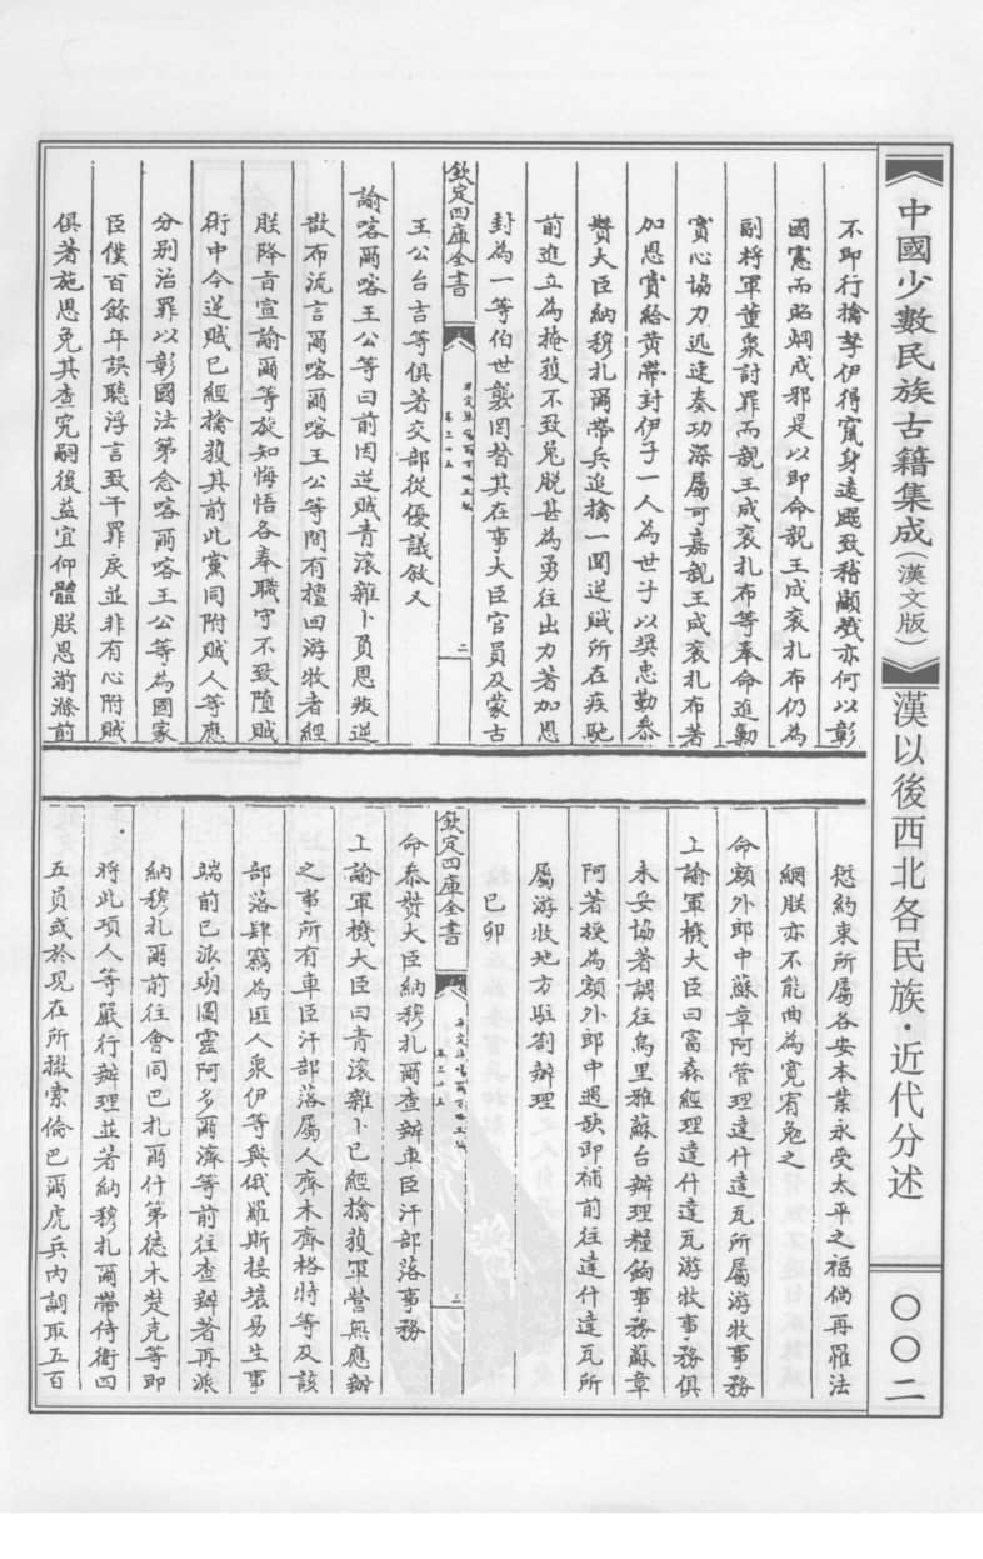 中國少數民族古籍集成（漢文版）
漢以後西北各民族·近代分述
〇〇二
不即行擒拏伊得竄身遠颺致稽顯戮亦何以彰
國憲而昭炯戒耶是以即命親王成衮扎布仍為
副將軍董衆討罪而親王成衮扎布等奉命進勦
實心協力迅速奏功深屬可嘉親王成衮扎布著
加恩賞給黄帶封伊子一人為世子以奬忠勤叅
贊大臣納穆扎爾帶兵追擒一聞逆賊所在疾馳
前進立為掩獲不致兔脱甚為勇往出力著加恩
封為一等伯世襲罔替其在事大臣官員及蒙古
欽定四庫全書
二
王公台吉等俱著交部從優議敘又
諭喀爾喀王公等曰前因逆賊青滚雜卜負恩叛逆
散布流言爾喀爾喀王公等間有擅回游牧者經
朕降旨宣諭爾等旋知悔悟各奉職守不致墮賊
術中今逆賊已經擒獲其前此黨同附賊人等應
分别治罪以彰國法第念喀爾喀王公等為國家
臣僕百餘年誤聽浮言致干罪戾並非有心附賊
俱著施恩免其查究嗣後益宜仰體朕恩湔滌前
愆約束所屬各安本業永受太平之福倘再罹法
網朕亦不能曲為寛宥勉之
命額外郎中蘇章阿管理達什達瓦所屬游牧事務
上諭軍機大臣曰富森經理達什達瓦游牧事務俱
未妥協著調往烏里雅蘇台辦理糧餉事務蘇章
阿著授為額外郎中遇缺即補前往達什達瓦所
屬游牧地方駐劄辦理
己卯
欽定四庫全書
二
命叅贊大臣納穆扎爾查辦車臣汗部落事務
上諭軍機大臣曰青滚雜卜已經擒獲軍營無應辦
之事所有車臣汗部落屬人齊木齊格特等及該
部落肆竊為匪人衆伊等與俄羅斯接壤易生事
端前已派胡圖靈阿多爾濟等前往查辦著再派
納穆扎爾前往會同巴扎爾什第德木楚克等即
將此項人等嚴行辦理並著納穆扎爾帶侍衛四
五員或於現在所撤索倫巴爾虎兵内調取五百